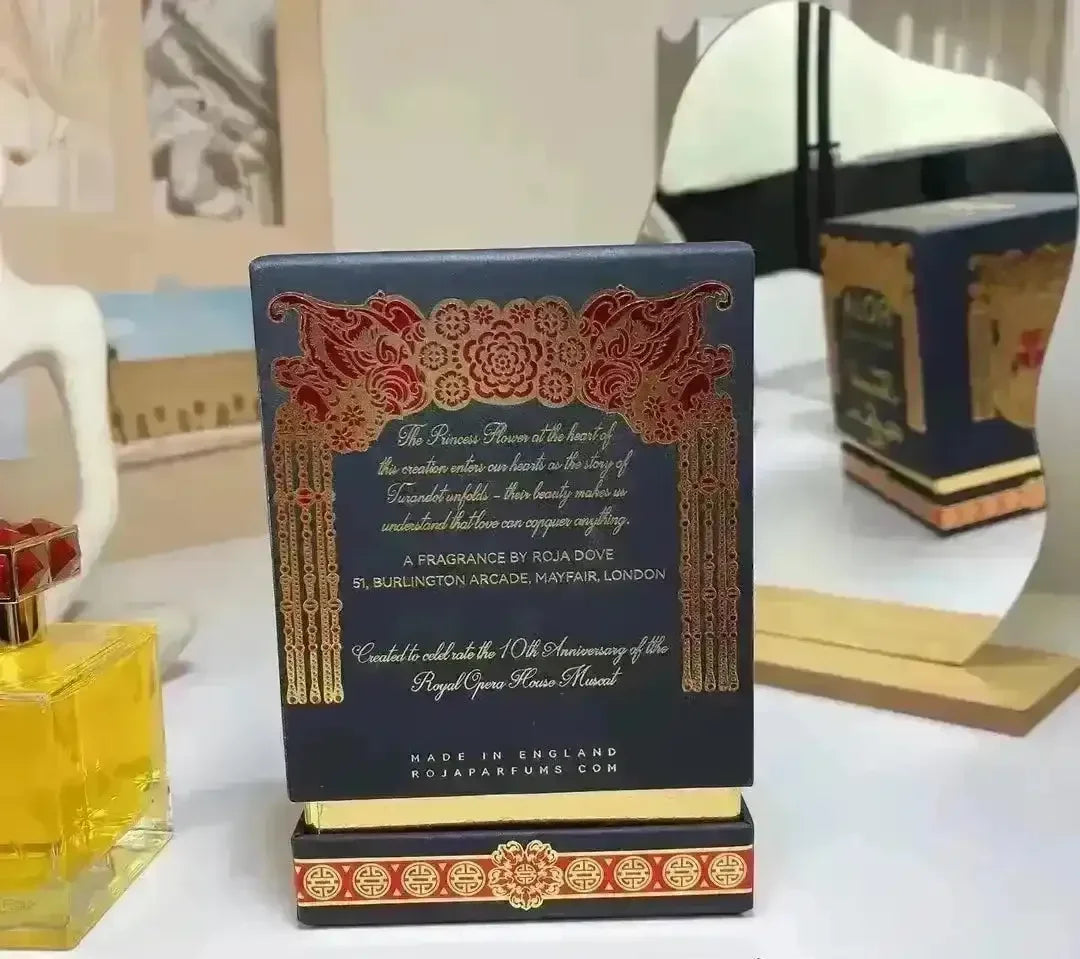 The Princess Flower at the heart of
this creation enters our hearts as the story of
Turandot unfolds – their beauty makes us
understand that love can copquer anything.
A FRAGRANCE BY ROJA DOVE
51, BURLINGTON ARCADE, MAYFAIR, LONDON
Created to celebrate the 10th Anniversary of the
Royal Opera House Muscat
MADE IN ENGLAND
ROJAPARFUMS.COM